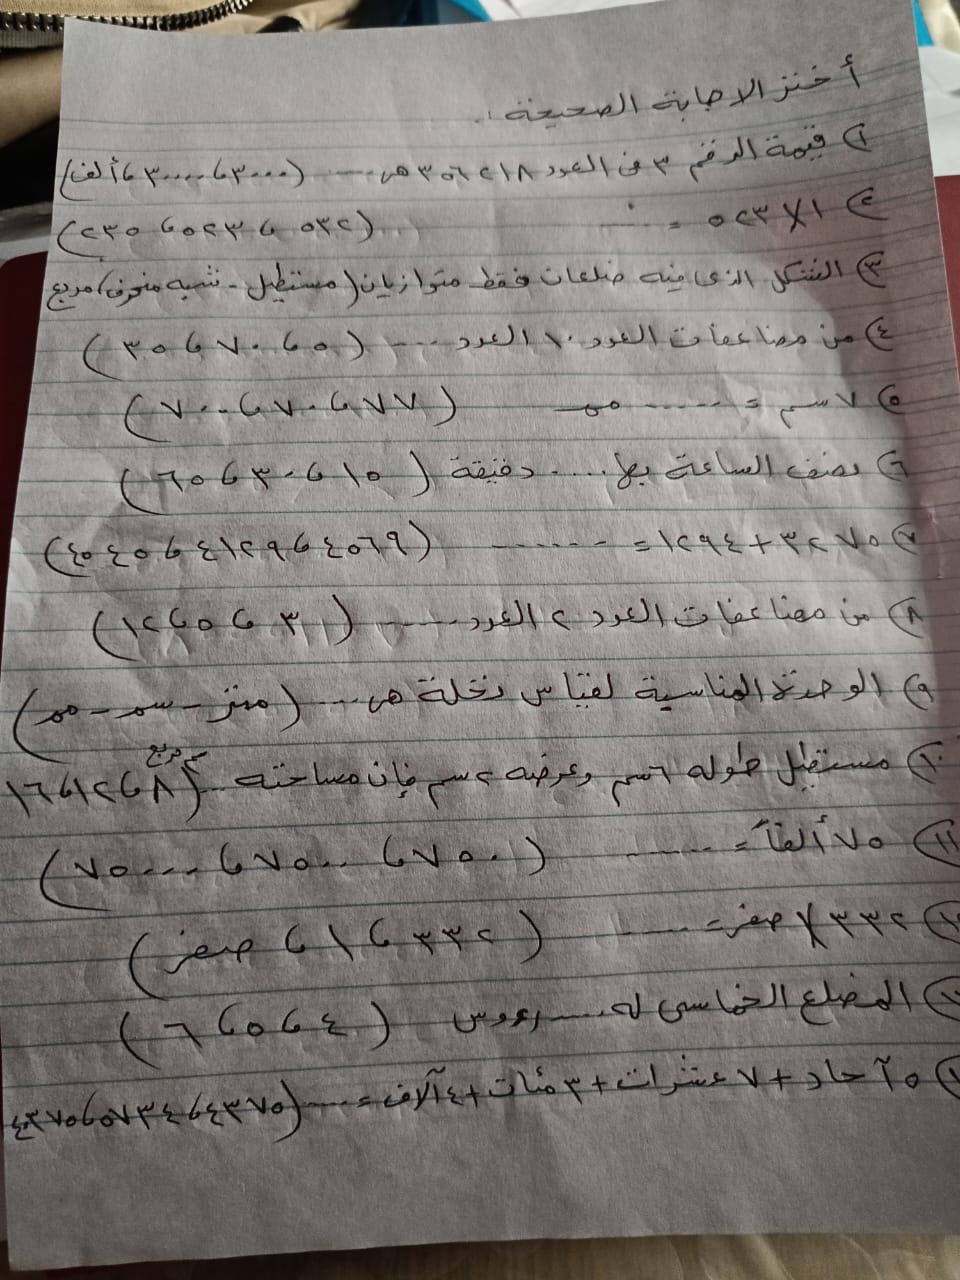 أختر الاجابة الصحيحة :.
١) قيمة الرقم ٣ فى العدد ٣٥٦٢١٨ هى .... (٣٠٠٠ ، ٣٠٠٠٠٠ ، ٣ ألف)
٢) ٥٢٣ X ١ = ...... (٥٣٢ ، ٥٢٣ ، ٢٣٥)
٣) الشكل الذى فيه ضلعان فقط متوازيان (مستطيل - شبه منحرف) مربع
٤) من مضاعفات العدد ١٠ العدد .... (٥ ، ٧٠ ، ٣٥)
٥) ٧ سم = ...... مم (٧٧ ، ٧٠ ، ٧٠٠)
٦) نصف الساعة بها .... دقيقة (١٥ ، ٣٠ ، ٦٥)
٧) ٣٢٧٥ + ١٢٩٤ = ...... (٤٥٦٩ ، ٤١٢٩٦ ، ٤٥٤٠)
٨) من مضاعفات العدد ٢ العدد ..... (٣ ، ٥ ، ١٢)
٩) الوحدة المناسبة لقياس نخلة هى .... (متر - سم - مم)
١٠) مستطيل طوله ٦ سم وعرضه ٢ سم فإن مساحته .. سم مربع (٨ ، ١٢ ، ١٦
١١) ٧٥ ألفاً = ...... (٧٥٠ ، ٧٥٠٠ ، ٧٥٠٠٠)
٢٣٣٢ X صفر = ...... (٢٣٣٢ ، ١ ، صفر)
المضلع الخماسى له ..... رءوس (٤ ، ٥ ، ٦)
٥ آحاد + ٧ عشرات + ٣ مئات + ٤ آلاف = ..... (٤٣٧٥ ،